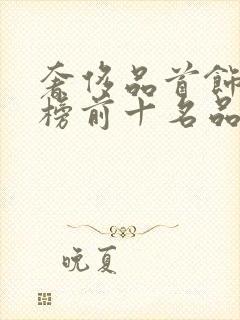 奢侈品首飾
榜前十名品
晚夏